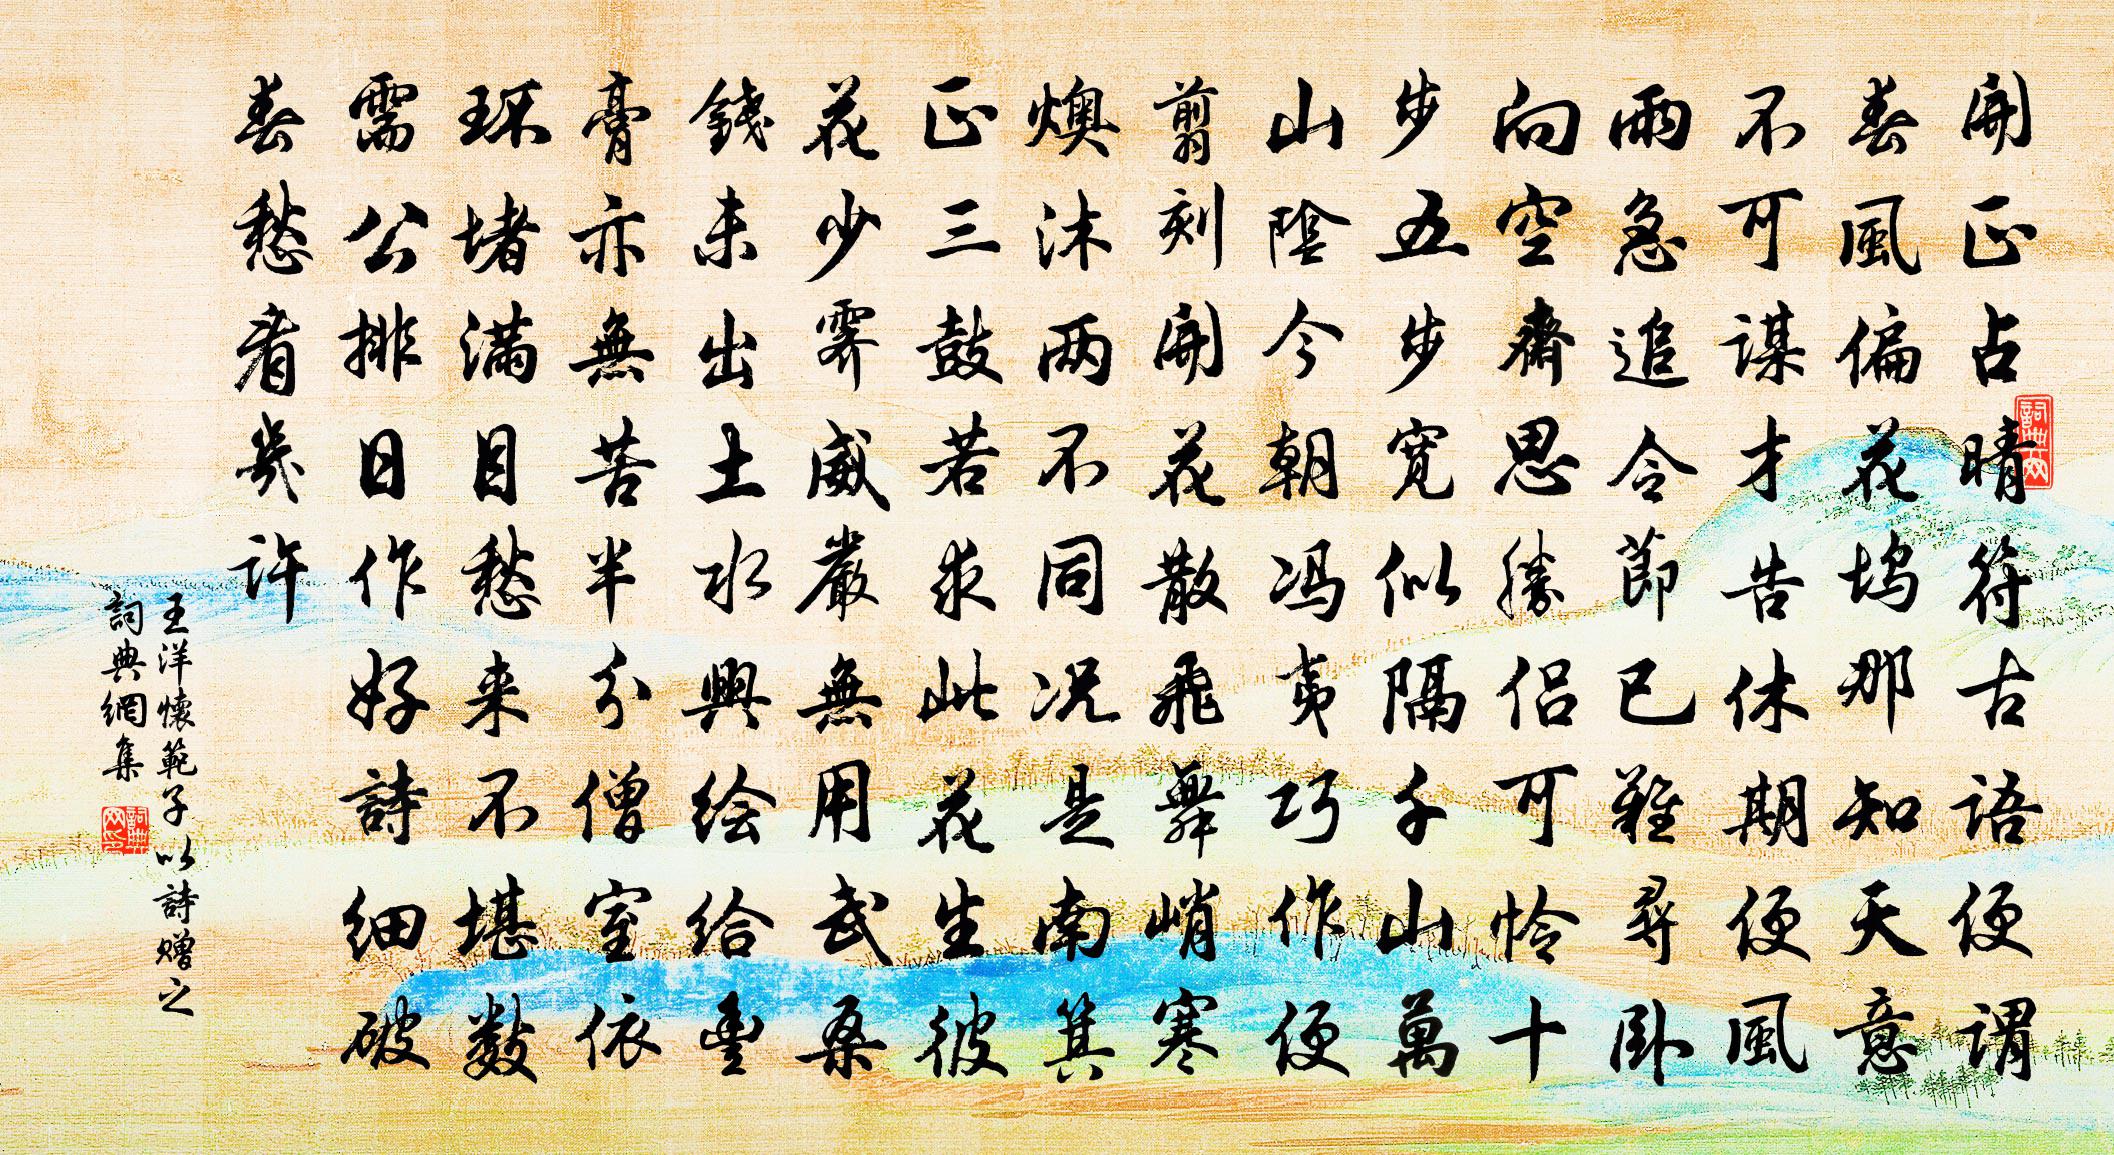 開正占晴符古語便謂
春風偏花塢那知天意
不可謀才告休期便風
雨急追令節已難尋卧
向空齋思勝侣可怜十
步五步寬似隔千山萬
山陰今朝馮夷巧作便
剪刻開花散飛舞峭寒
燠沐两不同况是南箕
正三鼓若求此花生彼
花少霽威嚴無用武桑
錢未出土水興絵給豊
膏亦無苦半分僧室依
环堵滿目愁来不堪數
需公排日作好詩細破
春愁看幾許
王洋懷範子以詩贈之
詞典網集
詞典网
詞典网印